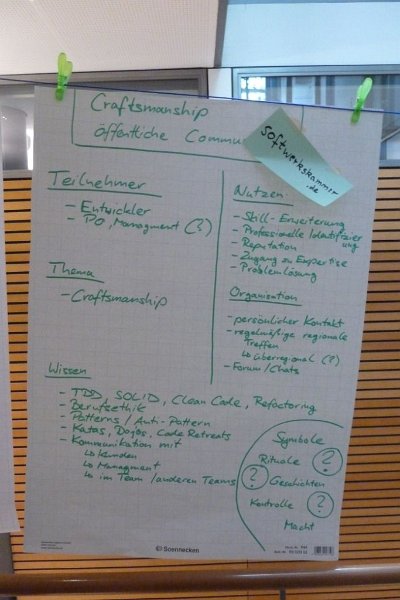 Craftsmanship
öffentliche Commu
Softwerkskammer
.de
Teilnehmer
- Entwickler
- PO, Managment (?)
Thema
- Craftsmanship
Nutzen
- Skill-Erweiterung
- Professionelle Identifizier
ung
- Reputation
- Zugang zu Expertise
- Problemlösung
Organisation
- persönlicher Kontakt
- regelmäßige regionale
Treffen
↳ überregional (?)
- Forum / Chats
Wissen
- TDD, SOLID, Clean Code, Refactoring
- Berufsethik
- Patterns / Anti-Pattern
- Katas, Dojos, Code Retreats
- Kommunikation mit
↳ Kunden
↳ Managment
↳ im Team / anderen Teams
Symbole
Rituale ?
? Geschichten
Kontrolle ?
Macht
Soennecken